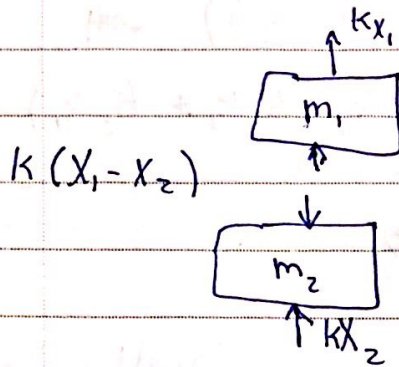 kx₁
m₁
K(X₁-X₂)
m₂
kX₂